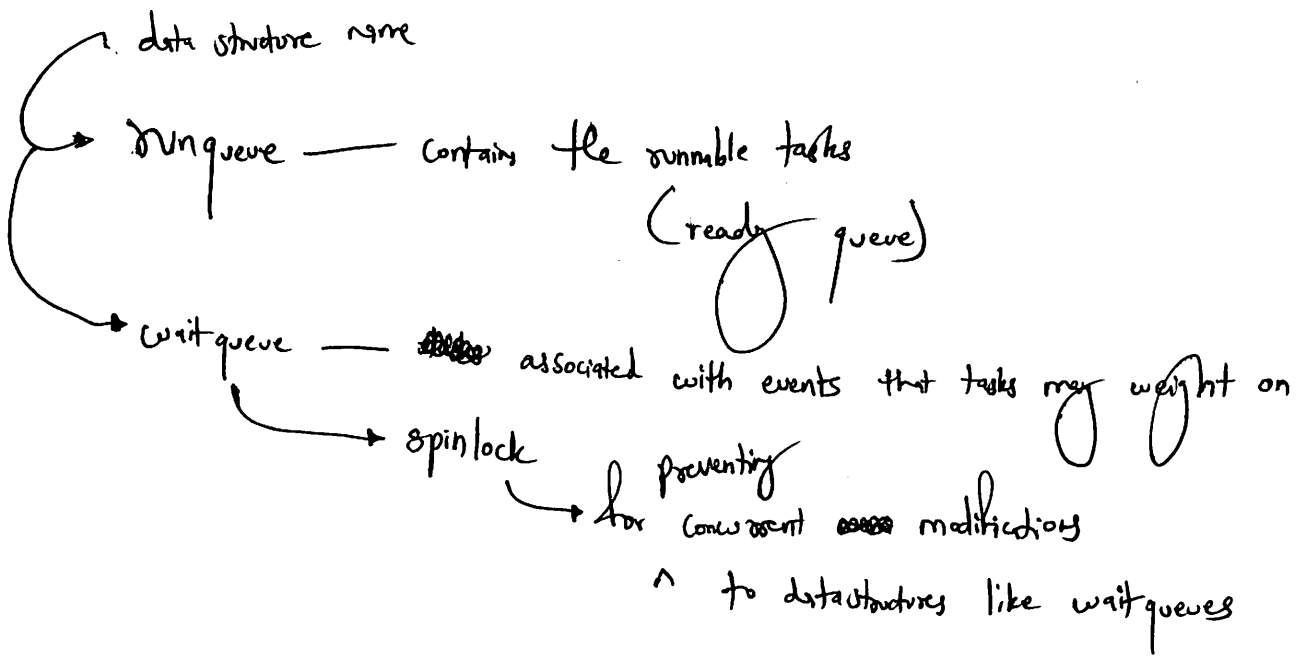 data structure name
runqueue — contains the runnable tasks
(ready queue)
waitqueue — associated with events that tasks may weight on
spinlock
for preventing concurrent modifications
to datastructures like waitqueues